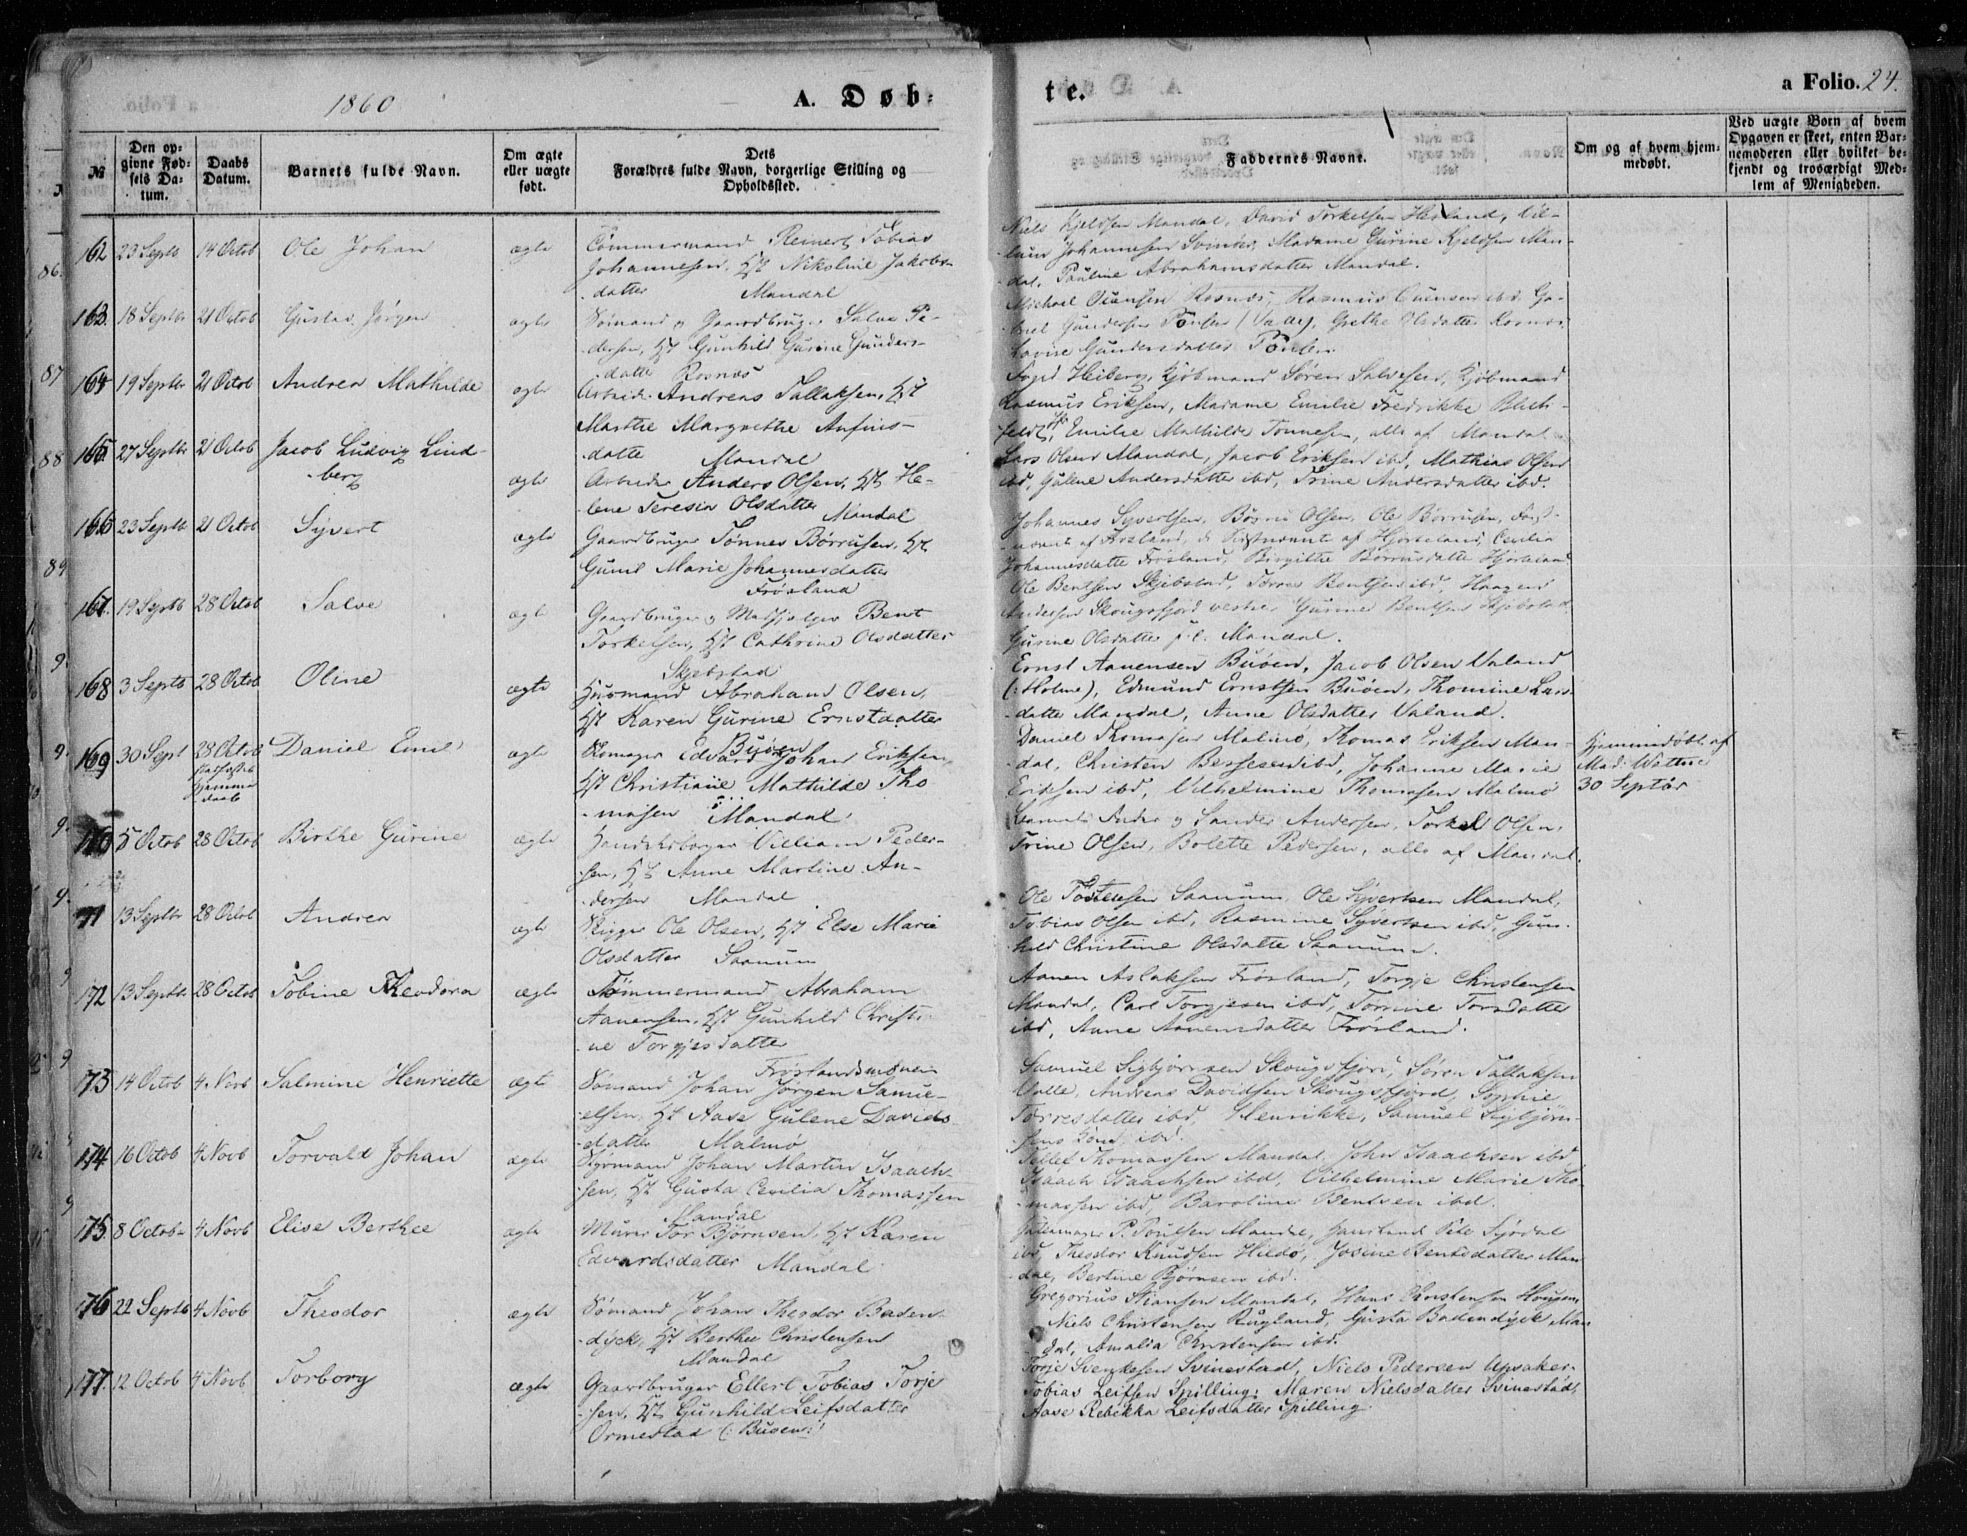 1860
A. Døb-
te.
a Folio. 24.
№
Den op-
givne Fød-
sels Da-
tum.
Daabs
Datum.
Barnets fulde Navn.
Om ægte
eller uægte
født.
Dets
Forældres fulde Navn, borgerlige Stilling og
Opholdssted.
Faddernes Navne.
Om og af hvem hjem-
medøbt.
Ved uægte Børn af hvem
Opgaven er skeet, enten Bar-
nemoderen eller hvilket be-
kjendt og troværdigt Med-
lem af Menigheden.
162 23 Septb 14 Octob Ole Johan ægte Tømmermand Reinert Tobias
Johannesen, Hst Nikoline Jakobs-
datter Mandal
Niels Kjeldsen Mandal, David Torkelsen Hesland, Vil-
lum Johannesen Svinør, Madame Gurine Kjeldsen Man-
dal, Pauline Abrahamsdatter Mandal.
163. 18 Septbr 21 Octob Gustav Jørgen ægte Sømand og Gaardbruger Salve Pe-
dersen, Hst Gunhild Gurine Gunders-
datte Rosnæs
Michael Rosnæs, Rasmus ibd, Ga-
briel Gundersen (Valle), Grethe Olsdatter Rosnæs
Lovise Gundersdatter
164 19 Septbr 21 Octob Andrea Mathilde ægte Arbeid. Andreas Tallaksen, Hst
Marthe Margrethe Anfins-
datte Mandal
Foged Heiberg, Kjøbmand Søren Salvesen, Kjøbmand
Rasmus Eriksen, Madame Emilie Fredrikke
feldt, Emilie Mathilde Tønnesen, alle af Mandal
165. 27 Septbr 21 Octob Jacob Ludvig Lind-
berg ægte Arbeider Anders Olsen, Hst He-
lene Teresia Olsdatter
Mandal
Lars Olsen Mandal, Jacob Eriksen ibd, Mathias Olsen
ibd, Gulene Andersdatter ibd, Trine Andersdatter ibd.
166 23 Septb 21 Octob Syvert ægte Gaardbruger Tønnes Børrusen, Hst
Gunil Marie Johannesdatter
Frøsland
Johannes Syvertsen, Børru Olsen, Ole Børrusen, Først-
nævnt af Frøsland, de Sidstnævnte af Hjorteland, Cecilia
Johannesdatte Frøsland, Birgitte Børrusdatte Hjorteland
167. 19 Septb 28 Octob Salve ægte Gaardbruger og Bent
Torkelsen, Hst Cathrine Olsdatter
Skjebstad
Ole Bentsen Skjebstad, Bentsen ibd, Haagen
Andersen Skougsfjord vestre, Gurine Bentsen Skjebstad
Gurine Olsdatter Mandal.
168 3 Septb 28 Octob Oline ægte Husmand Abraham Olsen,
Hst Karen Gurine Ernstdatter
Buøen
Ernst Aanensen Buøen, Jacob Olsen Valand
(: Holme), Edmund Ernstsen Buøen, Thomine Lars-
datte Mandal, Anne Olsdatter Valand.
169 30 Sept 28 Octob
Hjemme
daab
Daniel Emil ægte Edvard Johan Eriksen,
Hst Christiane Mathilde Tho-
masen Mandal
Daniel Thomasen Malmø, Thomas Eriksen Man-
dal, Christen Bergesen ibd, Johanne Marie
Eriksen ibd, Vilhelmine Thomasen Malmø
Hjemmedøbt af
Mad: Wattne
30 Septbr
170 5 Octob 28 Octob Birthe Gurine ægte Villiam Peder-
sen, Hst Anne Martine An-
dersen Mandal
og Sander Andersen, Torkel Olsen,
Trine Olsen, Bolette Pedersen, alle af Mandal.
171 13 Septbr 28 Octob Andrea ægte Rigger Ole Olsen, Hst Else Marie
Olsdatter Saanum
Ole Tostensen Saanum, Ole Syvertsen Mandal,
Tobias Olsen ibd, Rasmine Syvertsen ibd, Gun-
hild Christine Olsdatte Saanum.
172 13 Septbr 28 Octob Tobine Theodora ægte Tømmermand Abraham
Aanensen, Hst Gunhild Christi-
ne Torgjesdatter
Frøslandsmoen
Aanen Aslaksen Frøsland, Torgje Christensen
Mandal, Carl Torgjesen ibd, Tomine Torsdatter
ibd, Anne Aanensdatter Frøsland.
173 14 Octob 4 Novb Salmine Henriette ægte Sømand Johan Jørgen Samu-
elsen, Hst Aase Gulene Davids-
datter Malmø
Samuel Sigbjørnsen Skougsfjord, Søren Tallaksen
Valle, Andreas Davidsen Skougsfjord, Sophie
Torresdatter ibd, Henrikke, Samuel Sigbjørn-
sens Kone ibd.
174 16 Octob 4 Novb Torvald Johan ægte Styrmand Johan Martin Isaach-
sen, Hst Gusta Cecilia Thomassen
Mandal
Tellef Thomassen Mandal, John Isaachsen ibd
Isaach Isaachsen ibd, Vilhelmine Marie Tho-
massen ibd, Baroline Bentsen ibd.
175 8 Octob 4 Novb Elise Berthee ægte Murer Tor Bjørnsen, Hst Karen
Edvardsdatter Mandal
P. Poulsen Mandal, Peter Sjødal
ibd, Theodor Knudsen Hildø, Josine Bentsdatter Man-
dal, Bertine Bjørnsen ibd.
176 22 Septb 4 Novb Theodor ægte Sømand Johan Theodor Baden-
dyck, Hst Berthe Christensen
Mandal
Gregorius Stiansen Mandal, Hans Christensen Hougen,
Niels Christensen Rugland, Gusta Badendyck Man-
dal, Amalia Christensen ibd.
177. 12 Octob 4 Novb Torborg ægte Gaardbruger Ellert Tobias Torje-
sen, Hst Gunhild Leifsdatter
Ormestad (: Buøen :)
Torje Svenkesen Svinestad, Niels Pedersen Upsaker-
Tobias Leifsen Spilling, Maren Nielsdatter Svinestad,
Aase Rebekka Leifsdatter Spilling.